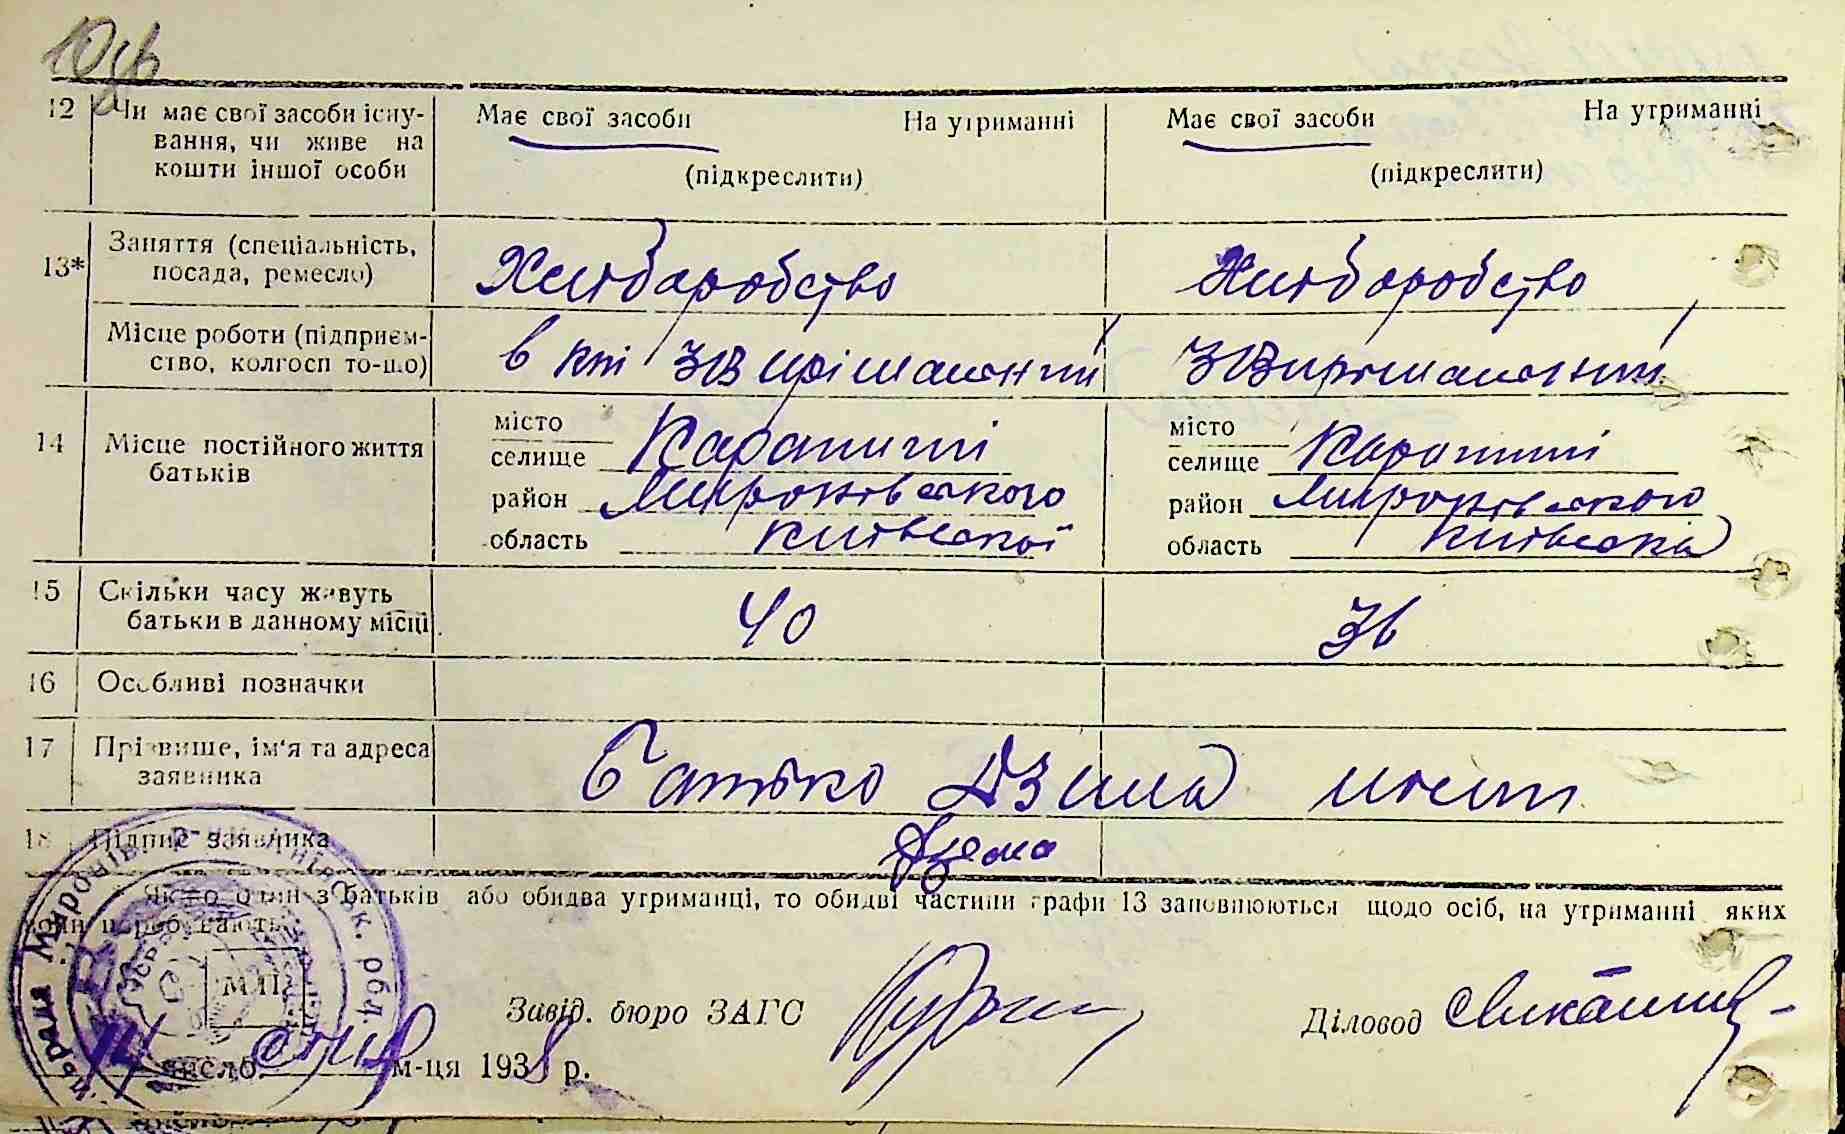 12 Чи має свої засоби існу- Має свої засоби На утриманні Має свої засоби На утриманні
вання, чи живе на
кошти іншої особи (підкреслити) (підкреслити)
13* Заняття (спеціальність,
посада, ремесло) Хліборобство Хліборобство
Місце роботи (підприєм-
ство, колгосп то-що) в
14 Місце постійного життя
батьків
місто місто
селище Карапиші селище Карапиші
район Миронівського район Миронівського
область Київської область Київська
15 Скільки часу живуть
батьки в данному місці 40 36
16 Особливі позначки
17 Прізвище, ім'я та адреса
заявника Батько Дзима
18 Підпис заявника Дзема
Якщо один з батьків або обидва утриманці, то обидві частини графи 13 заповнюються щодо осіб, на утриманні яких
вони перебувають.
М.П.
Завід. бюро ЗАГС Діловод
14 число м-ця 1938 р.